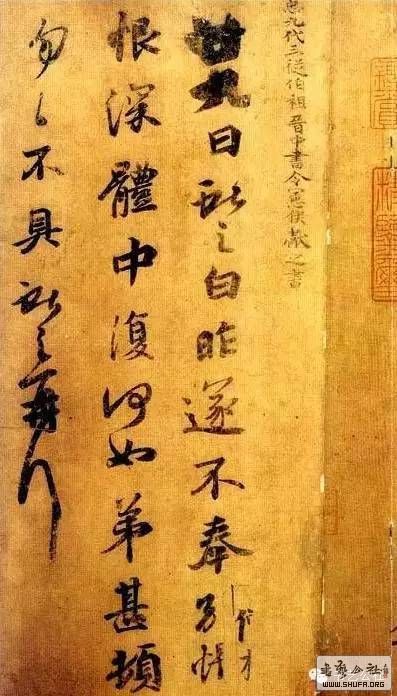 臣九代三從伯祖晉中書令憲侯獻之書
廿九日獻之白昨遂不奉別悵
恨深體中復何如弟甚頓
匆〻不具獻之再拜
書藝公社
WWW.SHUFA.ORG